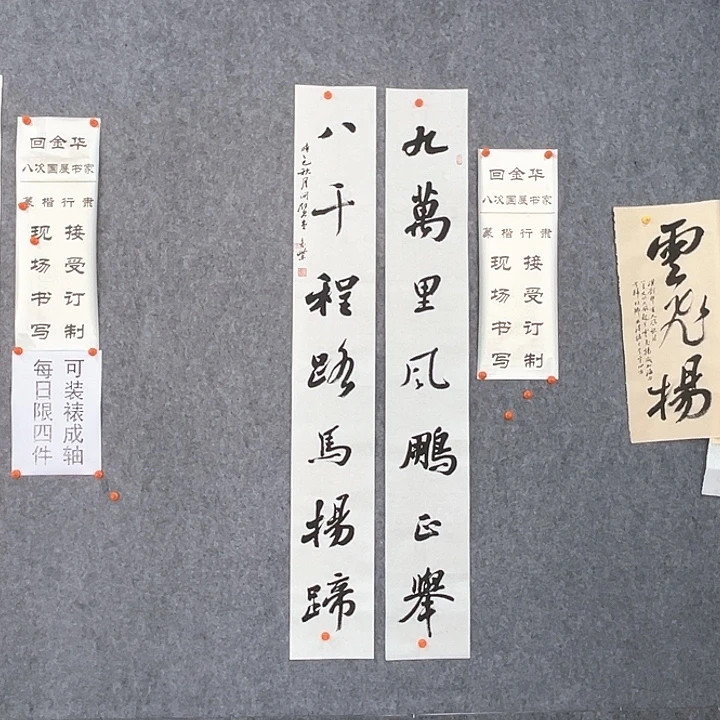 回金华
八次国展书家
篆楷行隶
现场书写
接受订制
可装裱成轴
每日限四件
九萬里风鵬正舉
八千程路馬揚蹄
回金华
八次国展书家
篆楷行隶
现场书写
接受订制
雲飛揚